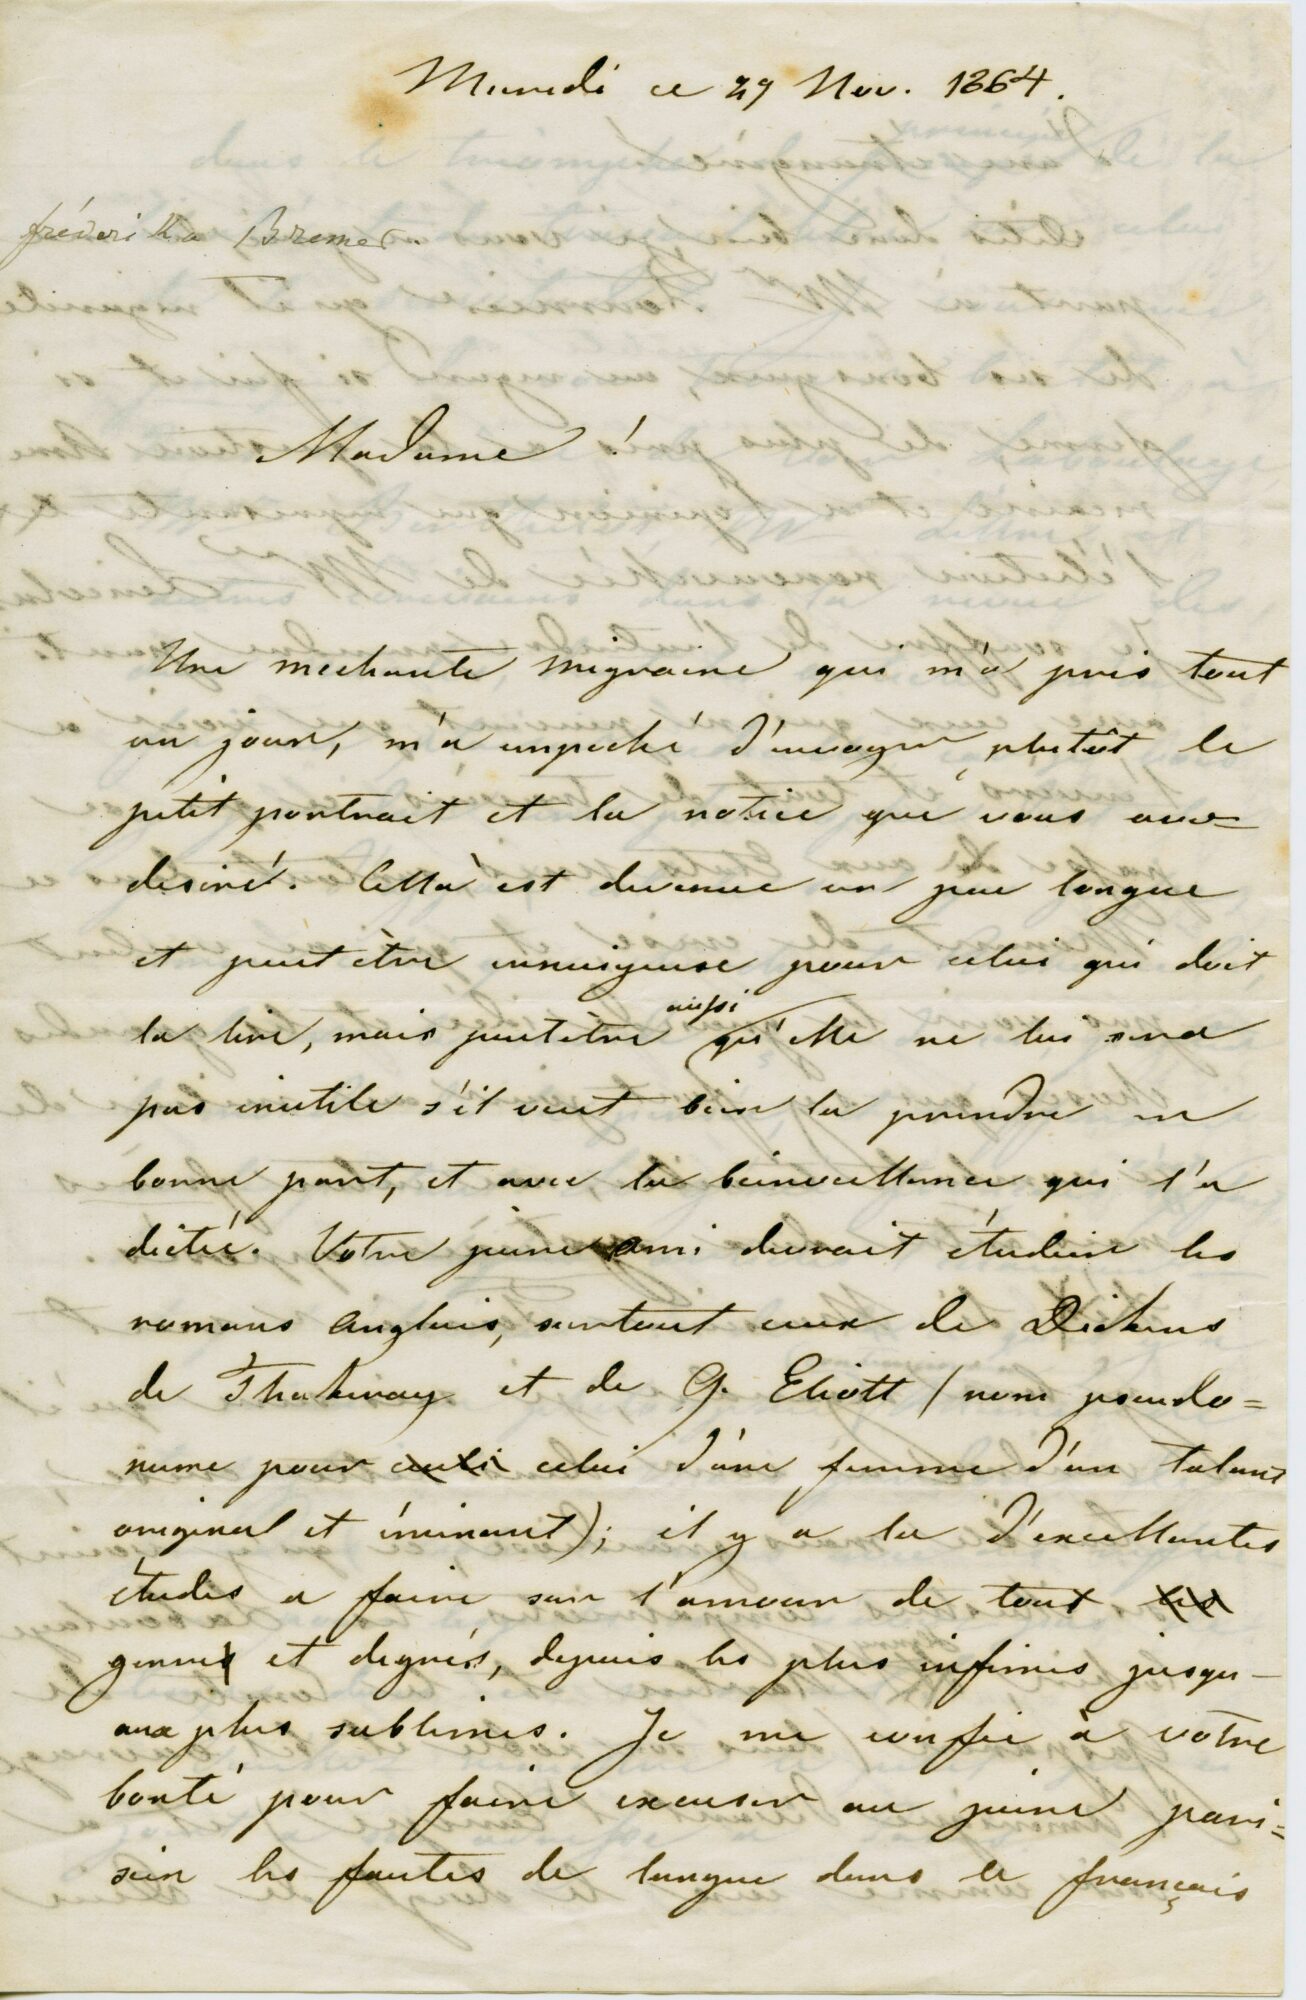 Muredi ce 29 Nov. 1864.
fréderika Bremer.
Madame !
Une mechante migraine qui m'a pris tout
un jour, m'a empeché d'envoyer plutôt le
petit portrait et la notice que vous avez
desiré. Cella est devenue un peu longue
et peut être ennuigeuse pour celui qui doit
la lire, mais peutetre aussi qu'elle ne lui sera
pas inutile s'il veut bien la prendre en
bonne part, et avec la bienveillance qui l'a
dictée. Votre jeune ami devrait étudier les
romans anglais, surtout ceux de Dickens
de Thakeray et de G. Eliott / nom pseudo=
nume pour celui d'une femme d'un talant
original et éminant); il y a la d'excellantes
études a faire sur l'amour de tout
genre et degrés, depuis les plus infimes jusqu-
aux plus sublimes. Je me confie à votre
bonté pour faire excuser au jeune pari=
sien les fautes de langue dans le français